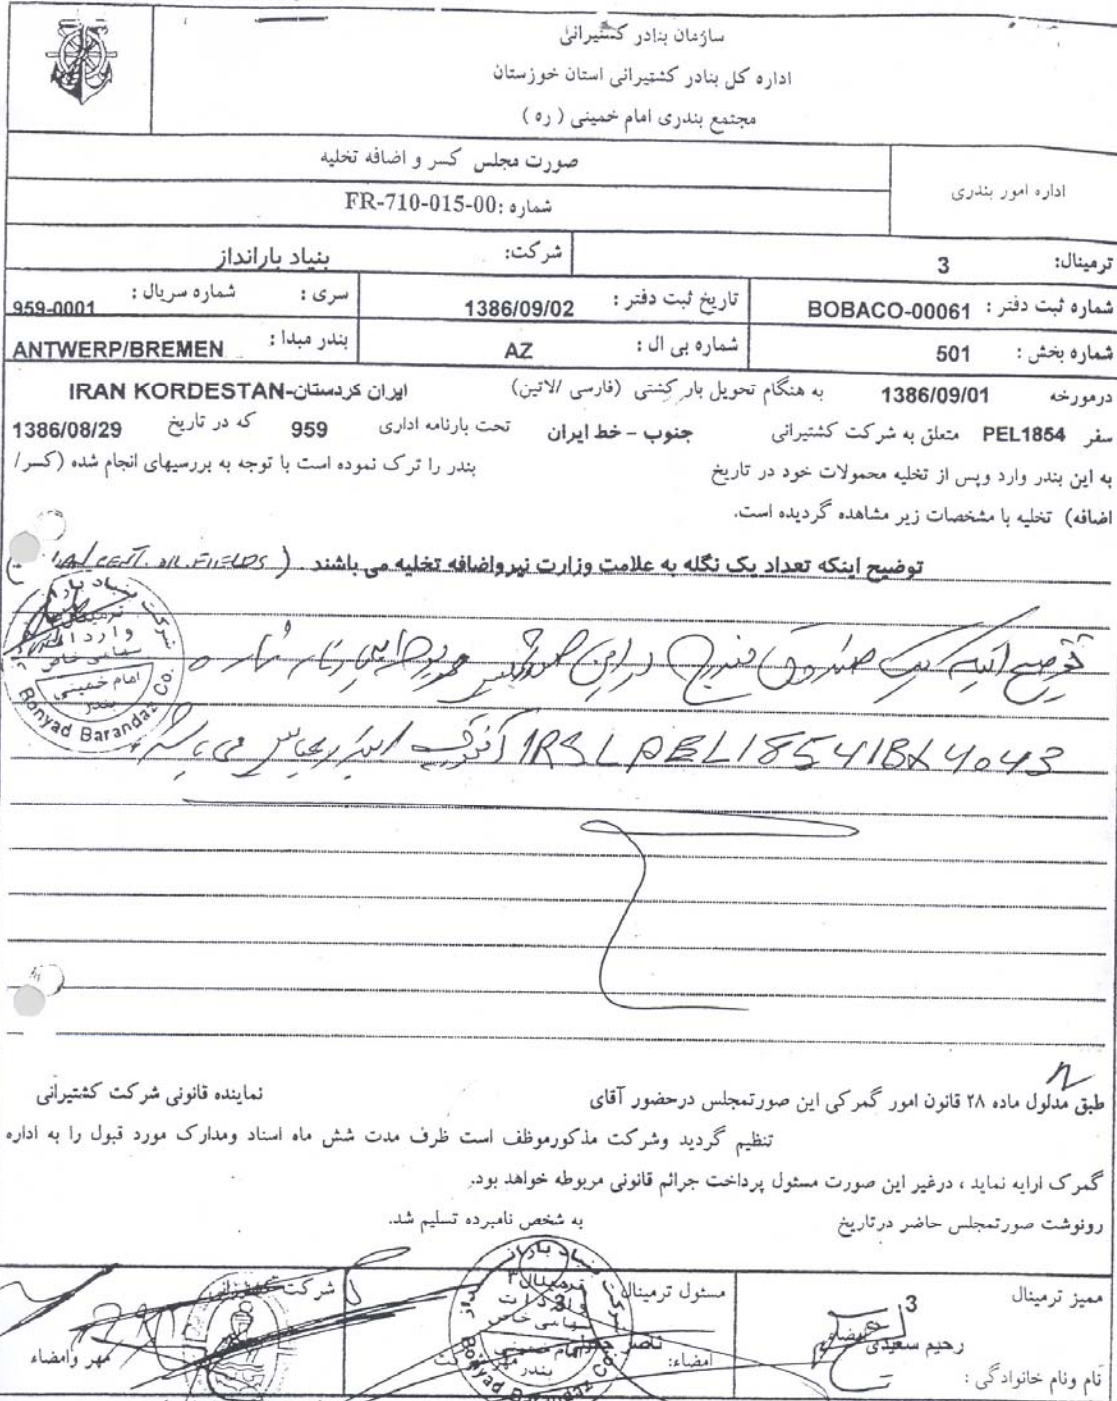 سازمان بنادر کشتیرانی
اداره کل بنادر کشتیرانی استان خوزستان
مجتمع بندری امام خمینی ( ره )
اداره امور بندری
صورت مجلس کسر و اضافه تخلیه
شماره :FR-710-015-00
ترمینال: 3
شرکت: بنیاد بارانداز
شماره ثبت دفتر : BOBACO-00061
تاریخ ثبت دفتر : 1386/09/02
سری : شماره سریال : 959-0001
شماره بخش : 501
شماره بی ال : AZ
بندر مبدا : ANTWERP/BREMEN
درمورخه 1386/09/01 به هنگام تحویل بار کشتی (فارسی /لاتین) ایران کردستان-IRAN KORDESTAN
سفر PEL1854 متعلق به شرکت کشتیرانی جنوب - خط ایران تحت بارنامه اداری 959 که در تاریخ 1386/08/29
به این بندر وارد وپس از تخلیه محمولات خود در تاریخ بندر را ترک نموده است با توجه به بررسیهای انجام شده (کسر/
اضافه) تخلیه با مشخصات زیر مشاهده گردیده است.
توضیح اینکه تعداد یک نگله به علامت وزارت نیرو اضافه تخلیه می باشند . ( IRAN CENT. OIL FIELDS )
توضیح اینکه یک صندوق مندرج در این صورتمجلس
IRSLPEL1854IBX4043 می باشد
شرکت بنیاد بارانداز
ترمینال
واردات
سهامی خاص
بندر امام خمینی
Bonyad Barandaz Co.
طبق مدلول ماده ۲۸ قانون امور گمرکی این صورتمجلس درحضور آقای نماینده قانونی شرکت کشتیرانی
تنظیم گردید وشرکت مذکورموظف است ظرف مدت شش ماه اسناد ومدارک مورد قبول را به اداره
گمرک ارایه نماید ، درغیر این صورت مسئول پرداخت جرائم قانونی مربوطه خواهد بود.
رونوشت صورتمجلس حاضر درتاریخ به شخص نامبرده تسلیم شد.
ممیز ترمینال 3
رحیم سعیدی
امضاء
نام ونام خانوادگی :
مسئول ترمینال 3
ناصر
امضاء:
شرکت بنیاد بارانداز
ترمینال ۳
واردات
سهامی خاص
بندر امام خمینی
Bonyad Barandaz Co.
شرکت کشتیرانی
مهر وامضاء